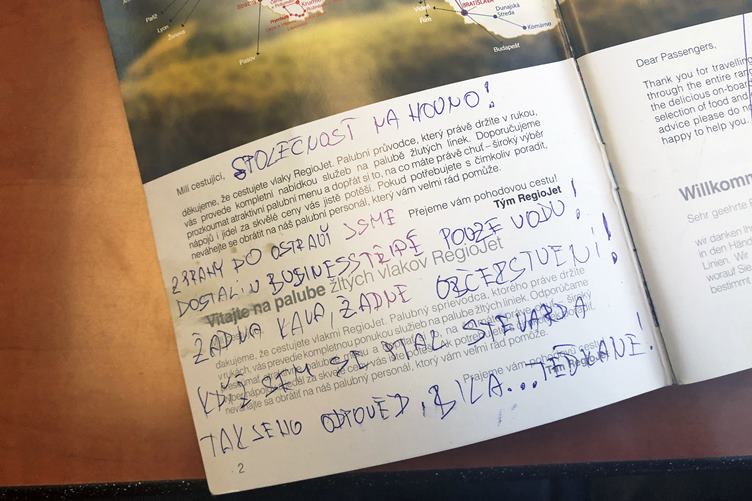 Paříž
Lyon
Ženeva
Plešov
BRATISLAVA
Dunajská
Streda
Komárno
Budapešť
Milí cestující,
SPOLEČNOST NA HOVNO!
děkujeme, že cestujete vlaky RegioJet. Palubní průvodce, který právě držíte v rukou,
vás provede kompletní nabídkou služeb na palubě žlutých linek. Doporučujeme
prozkoumat atraktivní palubní menu a dopřát si to, na co máte právě chuť – široký výběr
nápojů i jídel za skvělé ceny vás jistě potěší. Pokud potřebujete s čímkoliv poradit,
neváhejte se obrátit na náš palubní personál, který vám velmi rád pomůže.
Přejeme vám pohodovou cestu!
Tým RegioJet
Z PRAHY DO OSTRAVI JSME
DOSTALI V BUSINESSTŘÍDĚ POUZE VODU!
Vitajte na palube žltých vlakov RegioJet
ŽÁDNÁ KÁVA, ŽÁDNE OBČERSTVENÍ!
ďakujeme, že cestujete vlakmi RegioJet. Palubný sprievodca, ktorého práve držíte
v rukách, vás prevedie kompletnou ponukou služieb na palube žltých liniek. Odporúčame
neváhajte sa obrátiť na náš palubný personál, ktorý vám veľmi rád pomôže.
Prajeme vám pohodovú cestu!
KDIŽ SEM SE PTAL STEVARDA
TAK JEHO ODPOVĚĎ BILA...
2
Dear Passengers,
Thank you for travelling
through the entire ran
the delicious on-board
selection of food and
advice please do no
happy to help you.
Willkomm
Sehr geehrte F
wir danken Ihr
in den Händ
Linien. Wir
worauf Sie
bestimmt